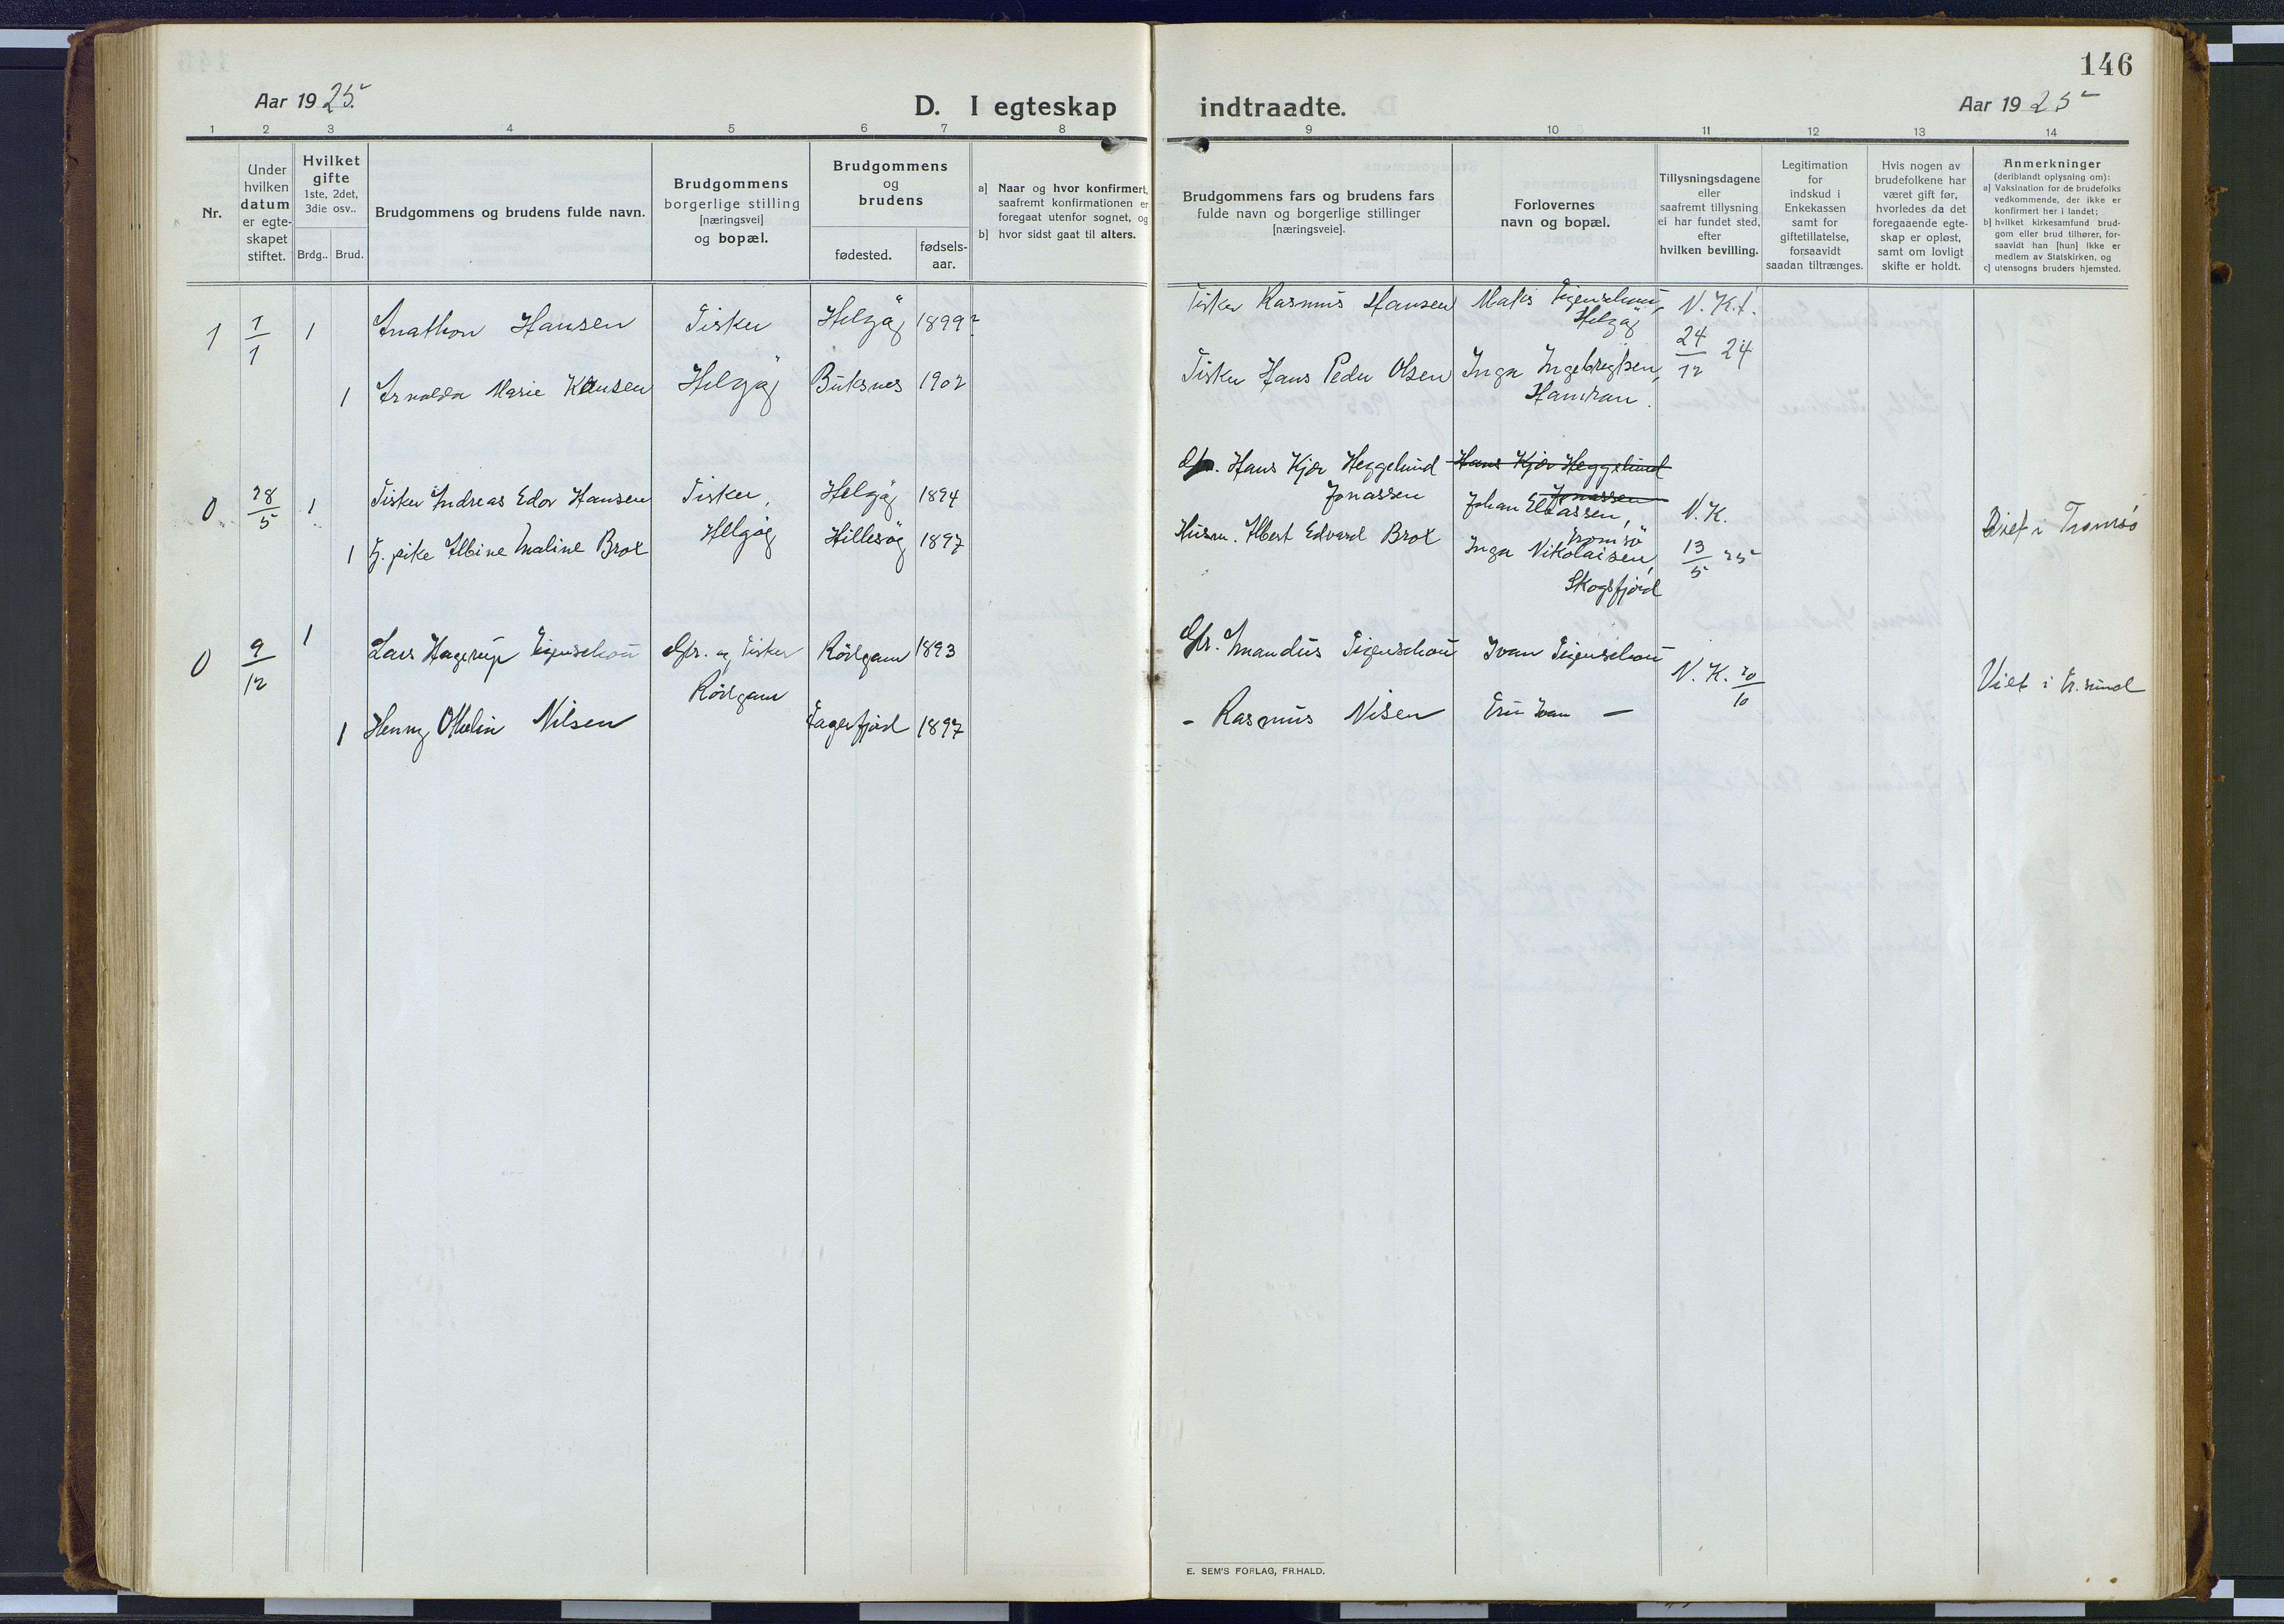 146
Aar 1925
D. I egteskap indtraadte.
Aar 1925
1 2 3 4 5 6 7 8 9 10 11 12 13 14
Nr.
Under
hvilken
datum
er egte-
skapet
stiftet.
Hvilket
gifte
1ste, 2det,
3die osv..
Brdg.. Brud.
Brudgommens og brudens fulde navn.
Brudgommens
borgerlige stilling
[næringsvei]
og bopæl.
Brudgommens
og
brudens
fødested.
fødsels-
aar.
a] Naar og hvor konfirmert,
saafremt konfirmationen er
foregaat utenfor sognet, og
b] hvor sidst gaat til alters.
Brudgommens fars og brudens fars
fulde navn og borgerlige stillinger
[næringsveie].
Forlovernes
navn og bopæl.
Tillysningsdagene
eller
saafremt tillysning
ei har fundet sted,
efter
hvilken bevilling.
Legitimation
for
indskud i
Enkekassen
samt for
giftetillatelse,
forsaavidt
saadan tiltrænges.
Hvis nogen av
brudefolkene har
været gift før,
hvorledes da det
foregaaende egte-
skap er opløst,
samt om lovligt
skifte er holdt.
Anmerkninger
(deriblandt oplysning om):
a] Vaksination for de brudefolks
vedkommende, der ikke er
konfirmert her i landet;
b] hvilket kirkesamfund brud-
gom eller brud tilhører, for-
saavidt han [hun] ikke er
medlem av Statskirken, og
c] utensogns bruders hjemsted.
1 1/1 1 Anathon Hansen Fisker Helgøy 1899
Fisker Rasmus Hansen
Helgøy
N. K.
24/12 24
1 Arnolda Marie Helgøy Buksnes 1902
Fisker Hans Peder Olsen Inga Ingebregtsen,
0 28/5 1 Fisker Andreas Edor Hansen Fisker, Helgøy 1894
Hans Kjær Heggelund Hans Kjær Heggelund
Jonassen Jonassen
Johan
Tromsø
N. K.
1 pike Albine Maline Brox Helgøy Hillesøy 1897
Husm. Albert Edvard Brox Inga Nikolaisen,
Skogsfjord
13/5 25
Viet i Tromsø
0 9/12 1 Lars Hagerup Figenschou Gbr. og Fisker 1893
Gbr. Amandus Figenschou Ivan Figenschou
N. K. 20/10
Viet i
1 Henny Othelin Nilsen Fagerfjord 1897
- Rasmus Nilsen Ivan —
E. SEM'S FORLAG, FR.HALD.